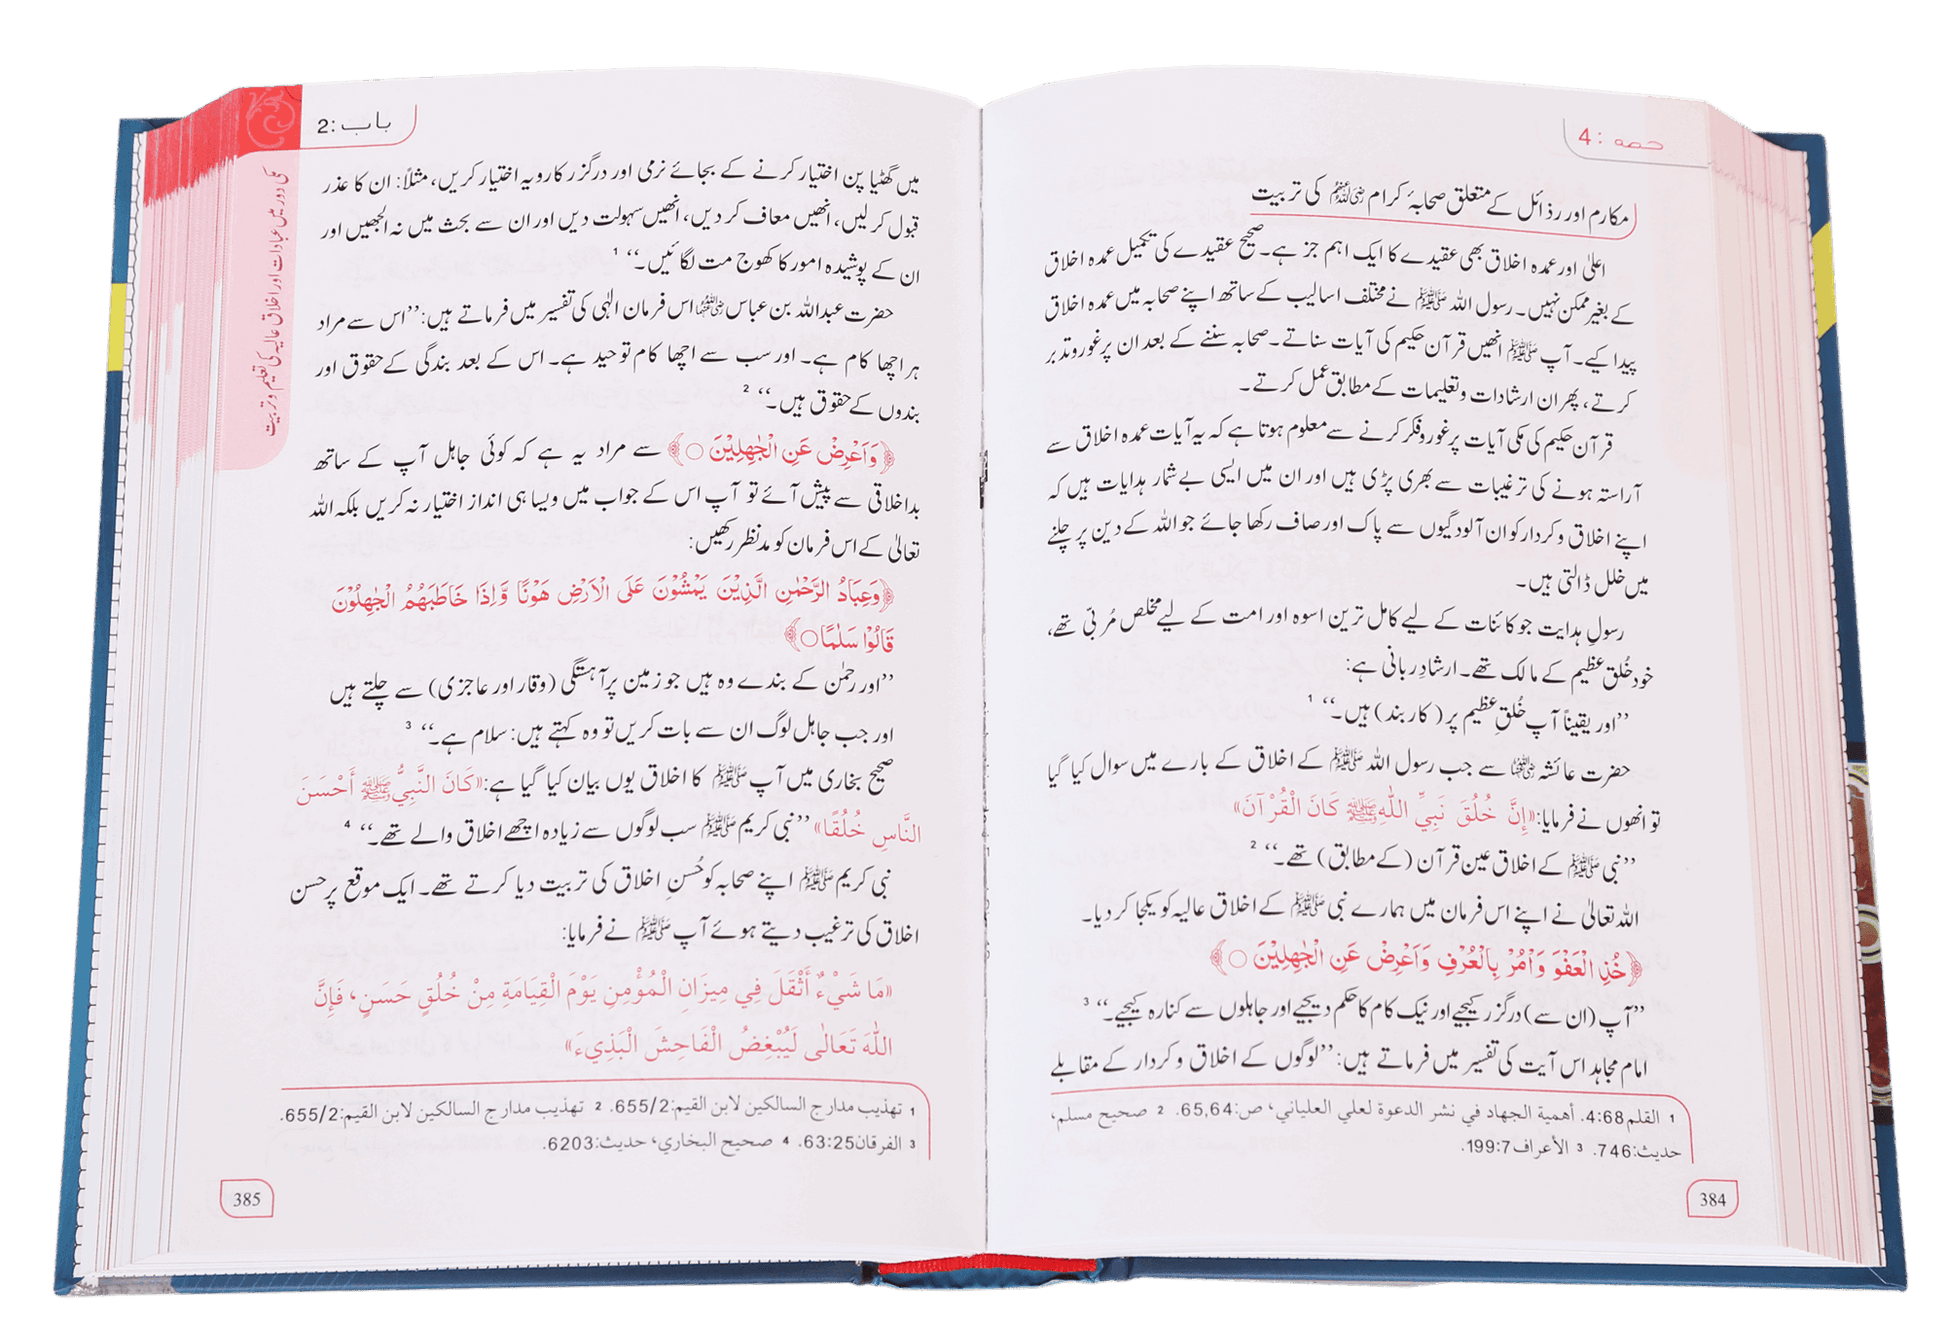 حصہ : 4
مکارم اور رذائل کے متعلق صحابۂ کرام رضی اللہ عنہم کی تربیت
اعلیٰ اور عمدہ اخلاق بھی عقیدے کا ایک اہم جز ہے۔ صحیح عقیدے کی تکمیل عمدہ اخلاق
کے بغیر ممکن نہیں۔ رسول اللہ ﷺ نے مختلف اسالیب کے ساتھ اپنے صحابہ میں عمدہ اخلاق
پیدا کیے۔ آپ ﷺ انھیں قرآن حکیم کی آیات سناتے۔ صحابہ سننے کے بعد ان پر غور و تدبر
کرتے، پھر ان ارشادات و تعلیمات کے مطابق عمل کرتے۔
قرآن حکیم کی مکی آیات پر غور و فکر کرنے سے معلوم ہوتا ہے کہ یہ آیات عمدہ اخلاق سے
آراستہ ہونے کی ترغیبات سے بھری پڑی ہیں اور ان میں ایسی بے شمار ہدایات ہیں کہ
اپنے اخلاق و کردار کو ان آلودگیوں سے پاک اور صاف رکھا جائے جو اللہ کے دین پر چلنے
میں خلل ڈالتی ہیں۔
رسولِ ہدایت جو کائنات کے لیے کامل ترین اسوہ اور امت کے لیے مخلص مُربّی تھے،
خود خُلق عظیم کے مالک تھے۔ ارشادِ ربانی ہے:
’’اور یقیناً آپ خُلقِ عظیم پر (کاربند) ہیں۔‘‘ 1
حضرت عائشہ رضی اللہ عنہا سے جب رسول اللہ ﷺ کے اخلاق کے بارے میں سوال کیا گیا
تو انھوں نے فرمایا: «إِنَّ خُلُقَ نَبِيِّ اللّٰهِ ﷺ كَانَ الْقُرْآنَ»
’’نبی ﷺ کے اخلاق عین قرآن (کے مطابق) تھے۔‘‘ 2
اللہ تعالیٰ نے اپنے اس فرمان میں ہمارے نبی ﷺ کے اخلاق عالیہ کو یکجا کر دیا۔
﴿خُذِ الْعَفْوَ وَاْمُرْ بِالْعُرْفِ وَاَعْرِضْ عَنِ الْجٰهِلِيْنَ ○﴾
’’آپ (ان سے) درگزر کیجیے اور نیک کام کا حکم دیجیے اور جاہلوں سے کنارہ کیجیے۔‘‘ 3
امام مجاہد اس آیت کی تفسیر میں فرماتے ہیں: ’’لوگوں کے اخلاق و کردار کے مقابلے
1 القلم 4:68. أهمية الجهاد في نشر الدعوة لعلي العلياني، ص:65,64. 2 صحيح مسلم،
حديث:746. 3 الأعراف 199:7.
384
باب :2
مکی دور میں عبادات اور اخلاق عالیہ کی تعلیم و تربیت
میں گھٹیا پن اختیار کرنے کے بجائے نرمی اور درگزر کا رویہ اختیار کریں، مثلاً: ان کا عذر
قبول کر لیں، انھیں معاف کر دیں، انھیں سہولت دیں اور ان سے بحث میں نہ الجھیں اور
ان کے پوشیدہ امور کا کھوج مت لگائیں۔‘‘ 1
حضرت عبداللہ بن عباس رضی اللہ عنہما اس فرمان الٰہی کی تفسیر میں فرماتے ہیں: ’’اس سے مراد
ہر اچھا کام ہے۔ اور سب سے اچھا کام توحید ہے۔ اس کے بعد بندگی کے حقوق اور
بندوں کے حقوق ہیں۔‘‘ 2
﴿وَاَعْرِضْ عَنِ الْجٰهِلِيْنَ ○﴾ سے مراد یہ ہے کہ کوئی جاہل آپ کے ساتھ
بداخلاقی سے پیش آئے تو آپ اس کے جواب میں ویسا ہی انداز اختیار نہ کریں بلکہ اللہ
تعالیٰ کے اس فرمان کو مدنظر رکھیں:
﴿وَعِبَادُ الرَّحْمٰنِ الَّذِيْنَ يَمْشُوْنَ عَلَى الْاَرْضِ هَوْنًا وَّاِذَا خَاطَبَهُمُ الْجٰهِلُوْنَ
قَالُوْا سَلٰمًا ○﴾
’’اور رحمٰن کے بندے وہ ہیں جو زمین پر آہستگی (وقار اور عاجزی) سے چلتے ہیں
اور جب جاہل لوگ ان سے بات کریں تو وہ کہتے ہیں: سلام ہے۔‘‘ 3
صحیح بخاری میں آپ ﷺ کا اخلاق یوں بیان کیا گیا ہے: «كَانَ النَّبِيُّ ﷺ أَحْسَنَ
النَّاسِ خُلُقًا» ’’نبی کریم ﷺ سب لوگوں سے زیادہ اچھے اخلاق والے تھے۔‘‘ 4
نبی کریم ﷺ اپنے صحابہ کو حُسنِ اخلاق کی تربیت دیا کرتے تھے۔ ایک موقع پر حسن
اخلاق کی ترغیب دیتے ہوئے آپ ﷺ نے فرمایا:
«مَا شَيْءٌ أَثْقَلَ فِي مِيزَانِ الْمُؤْمِنِ يَوْمَ الْقِيَامَةِ مِنْ خُلُقٍ حَسَنٍ، فَإِنَّ
اللّٰهَ تَعَالٰى لَيُبْغِضُ الْفَاحِشَ الْبَذِيءَ»
1 تهذيب مدارج السالكين لابن القيم:655/2. 2 تهذيب مدارج السالكين لابن القيم:655/2.
3 الفرقان 63:25. 4 صحيح البخاري، حديث:6203.
385